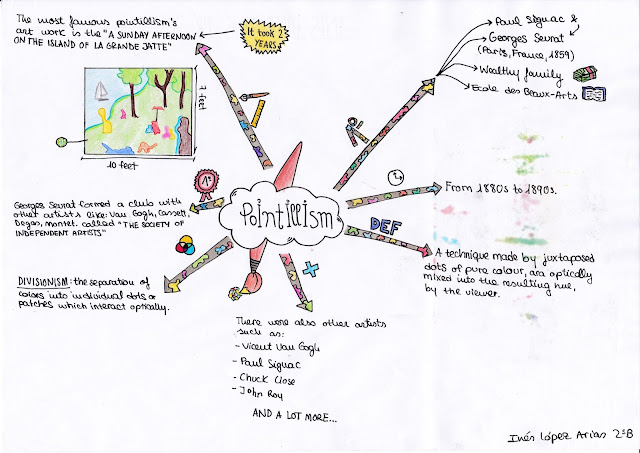 The most famous pointillism's
art work is the "A SUNDAY AFTERNOON
ON THE ISLAND OF LA GRANDE JATTE"
It took 2
YEARS
7 feet
10 feet
Paul Signac &
Georges Seurat
(París, France, 1859)
Wealthy family
Ecole des Beaux-Arts
1º
Georges Seurat formed a club with
other artists like: Van Gogh, Cassett,
Degas, Montet. called "THE SOCIETY OF
INDEPENDENT ARTISTS"
Pointillism
From 1880s to 1890s.
DEF
A technique made by juxtaposed
dots of pure colour, are optically
mixed into the resulting hue,
by the viewer.
DIVISIONISM: the separation of
colors into individual dots or
patches which interact optically.
+
There were also other artists
such as:
- Vicent Van Gogh
- Paul Signac
- Chuck Close
- John Roy
AND A LOT MORE...
Inés López Arias 2ºB